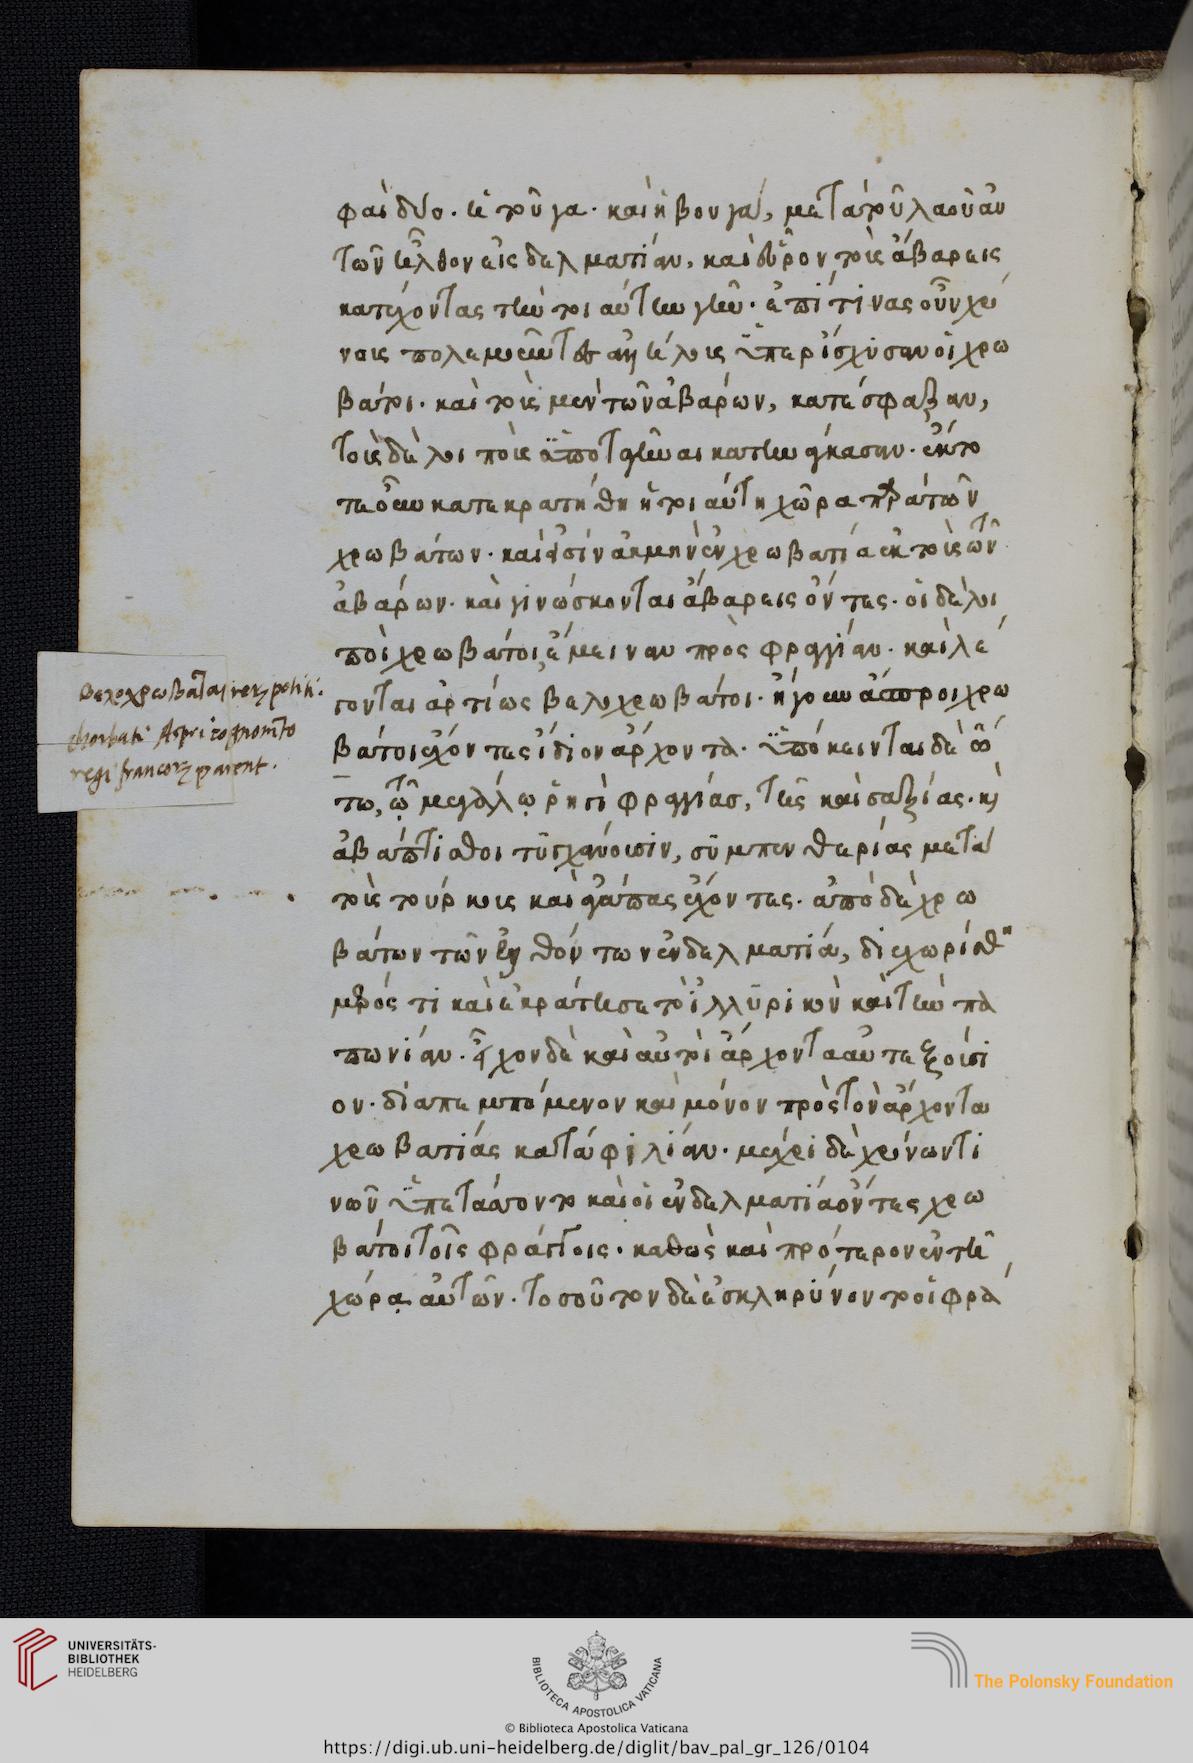 φαὶ δύο. ἡ τοῦγα. καὶ ἡ βουγά, μετὰ τοῦ λαοῦ αὐ
τῶν ἦλθον εἰς δελματίαν, καὶ εὗρον τοὺς ἀβάρεις
κατέχοντας τὴν τοιαύτην γῆν. ἐπί τινας οὖν χρό
νους πολεμοῦντες ἀλλήλους ὑπερίσχυσαν οἱ χρω
βάτοι. καὶ τοὺς μὲν τῶν ἀβάρων, κατέσφαξαν,
τοὺς δὲ λοιποὺς ὑποταγῆναι κατηνάγκασαν. ἔκτο
τε οὖν κατεκρατήθη ἡ τοιαύτη χώρα παρὰ τῶν
χρωβάτων. καὶ εἰσὶν ἀκμὴν ἐν χρωβατία ἐκ τοὺς τῶν
ἀβάρων. καὶ γινώσκονται ἀβάρεις ὄντες. οἱ δὲ λοι
ποὶ χρωβάτοι, ἔμειναν πρὸς φραγγίαν. καὶ λέ
γονται ἀρτίως βελοχρωβάτοι. ἤγουν ἄσπροι χρω
βάτοι ἔχοντες ἴδιον ἄρχοντα. ὑπόκεινται δὲ ὤ
τω, τῷ μεγάλῳ ῥηγὶ φραγγίας, τῆς καὶ σαξίας. κὶ
ἀβάπτιστοι τυγχάνουσιν, συμπενθερίας μετὰ
τοὺς τούρκους καὶ ἀγάπας ἔχοντες. ἀπὸ δὲ χρω
βάτων τῶν ἐλθόντων ἐν δελματία, διεχωρίσθη
μέρος τι καὶ ἐκράτησε τὸ ἰλλυρικὸν καὶ τὴν πα
πωνίαν. εἶχον δὲ καὶ αὐτοὶ ἄρχοντα αὐτεξούσι
ον. διαπεμπόμενον καὶ μόνον πρὸς τὸν ἄρχοντα
χρωβατίας κατὰ φιλίαν. μέχρι δὲ χρόνων τι
νῶν ὑπετάσσοντο καὶ οἱ ἐν δελματία ὄντες χρω
βάτοι τοῖς φράγγοις. καθὼς καὶ πρότερον ἐν τῆ
χώρᾳ αὐτῶν. τοσοῦτον δὲ ἐσκληρύνοντο οἱ φρά
Βελοχρωβάται
chorbati Aspri cognomento
regi francorum parent.
UNIVERSITÄTS-
BIBLIOTHEK
HEIDELBERG
BIBLIOTECA APOSTOLICA VATICANA
The Polonsky Foundation
© Biblioteca Apostolica Vaticana
https://digi.ub.uni-heidelberg.de/diglit/bav_pal_gr_126/0104